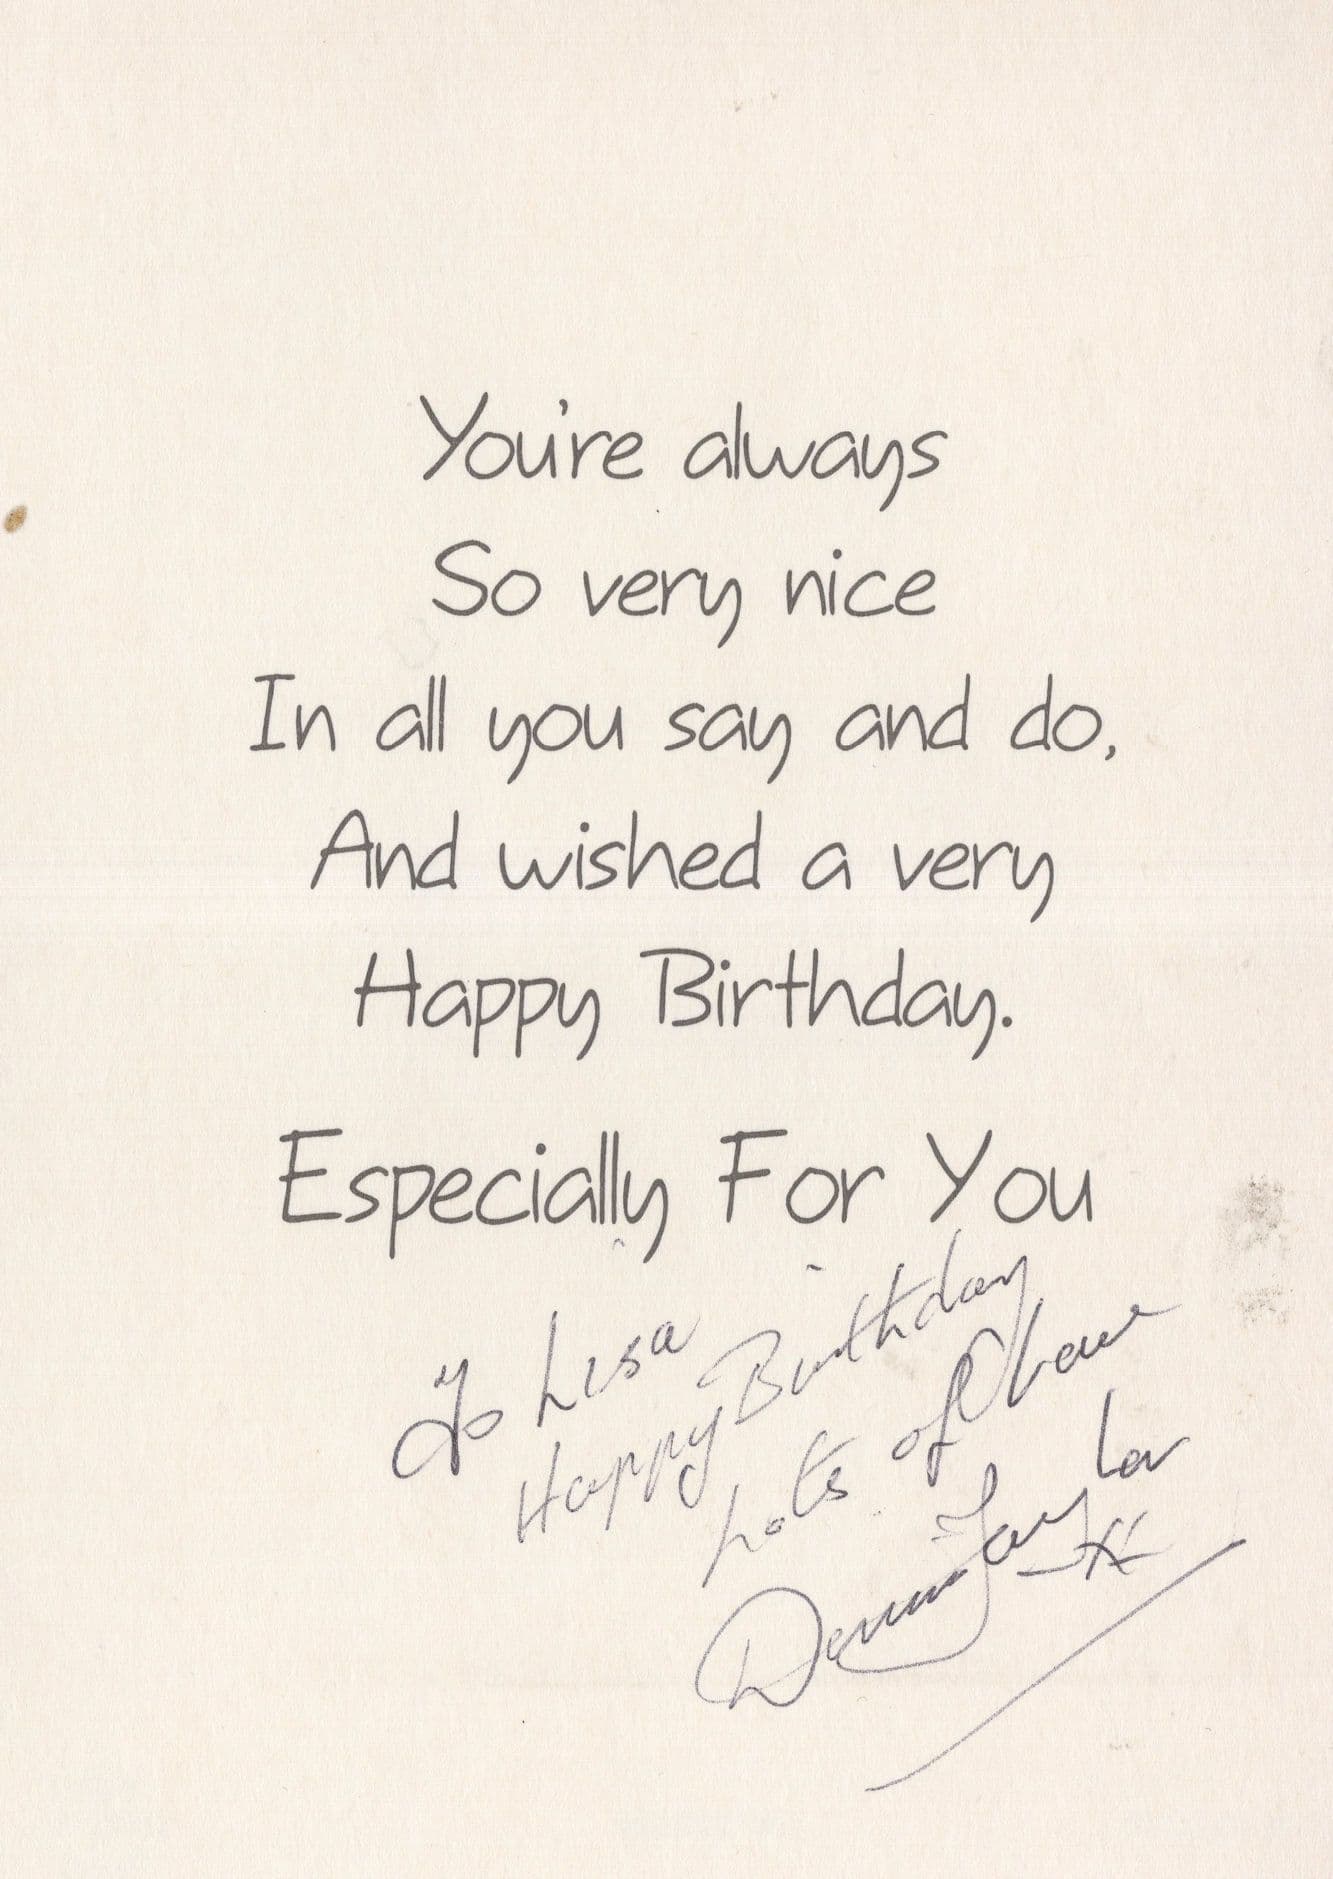 You're always
So very nice
In all you say and do,
And wished a very
Happy Birthday.
Especially For You
To Lisa
Happy Birthday
Lots of love
Dennis Taylor